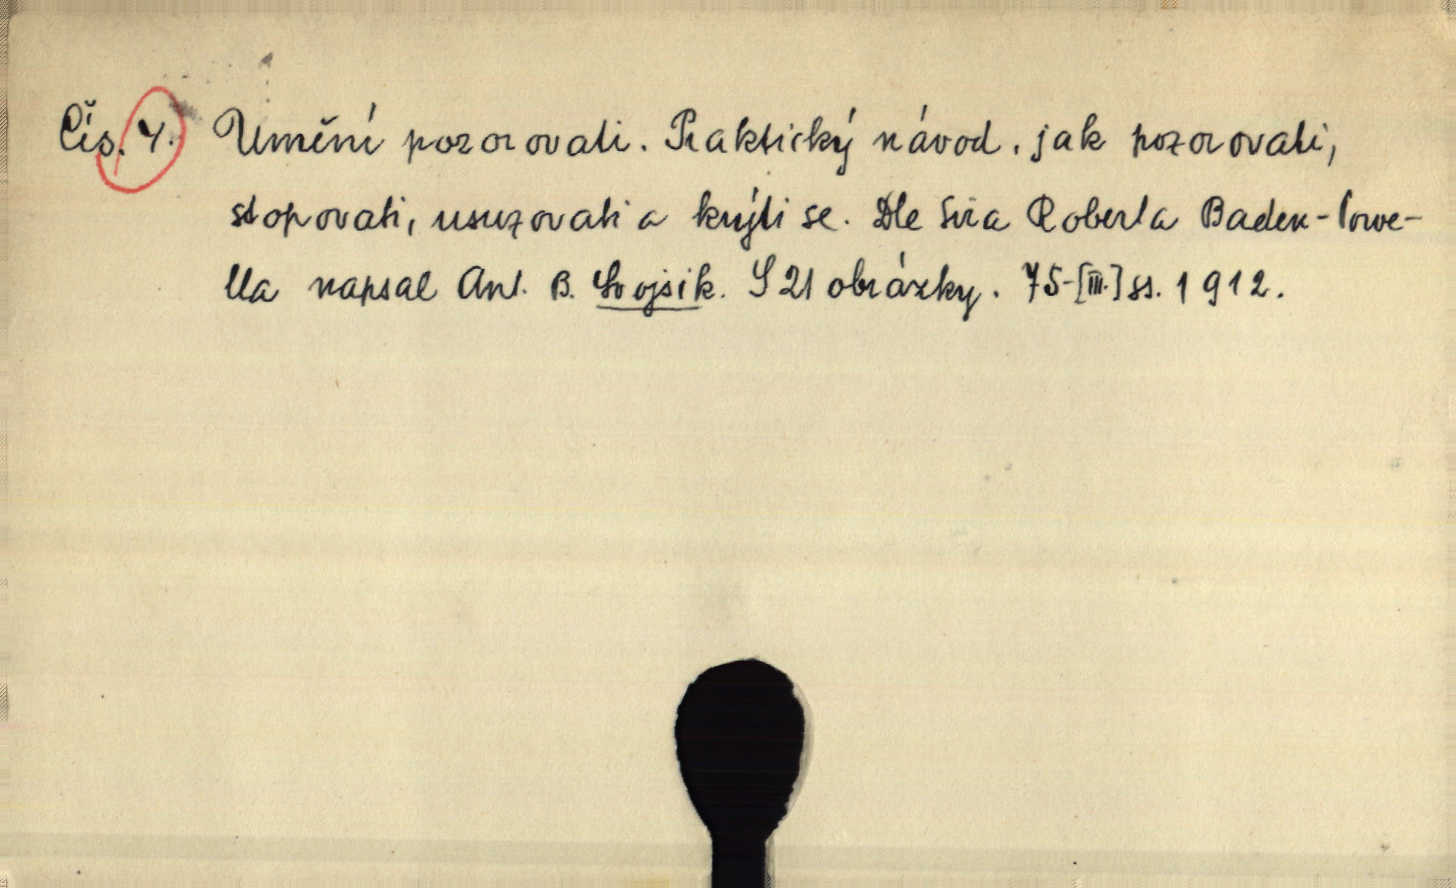 Čís. 4. Umění pozorovati. Praktický návod, jak pozorovati,
stopovati, usuzovati a krýti se. Dle Sira Roberta Baden-Powe-
lla napsal Ant. B. Svojsík. S 21 obrázky. 75-[III.] ss. 1912.